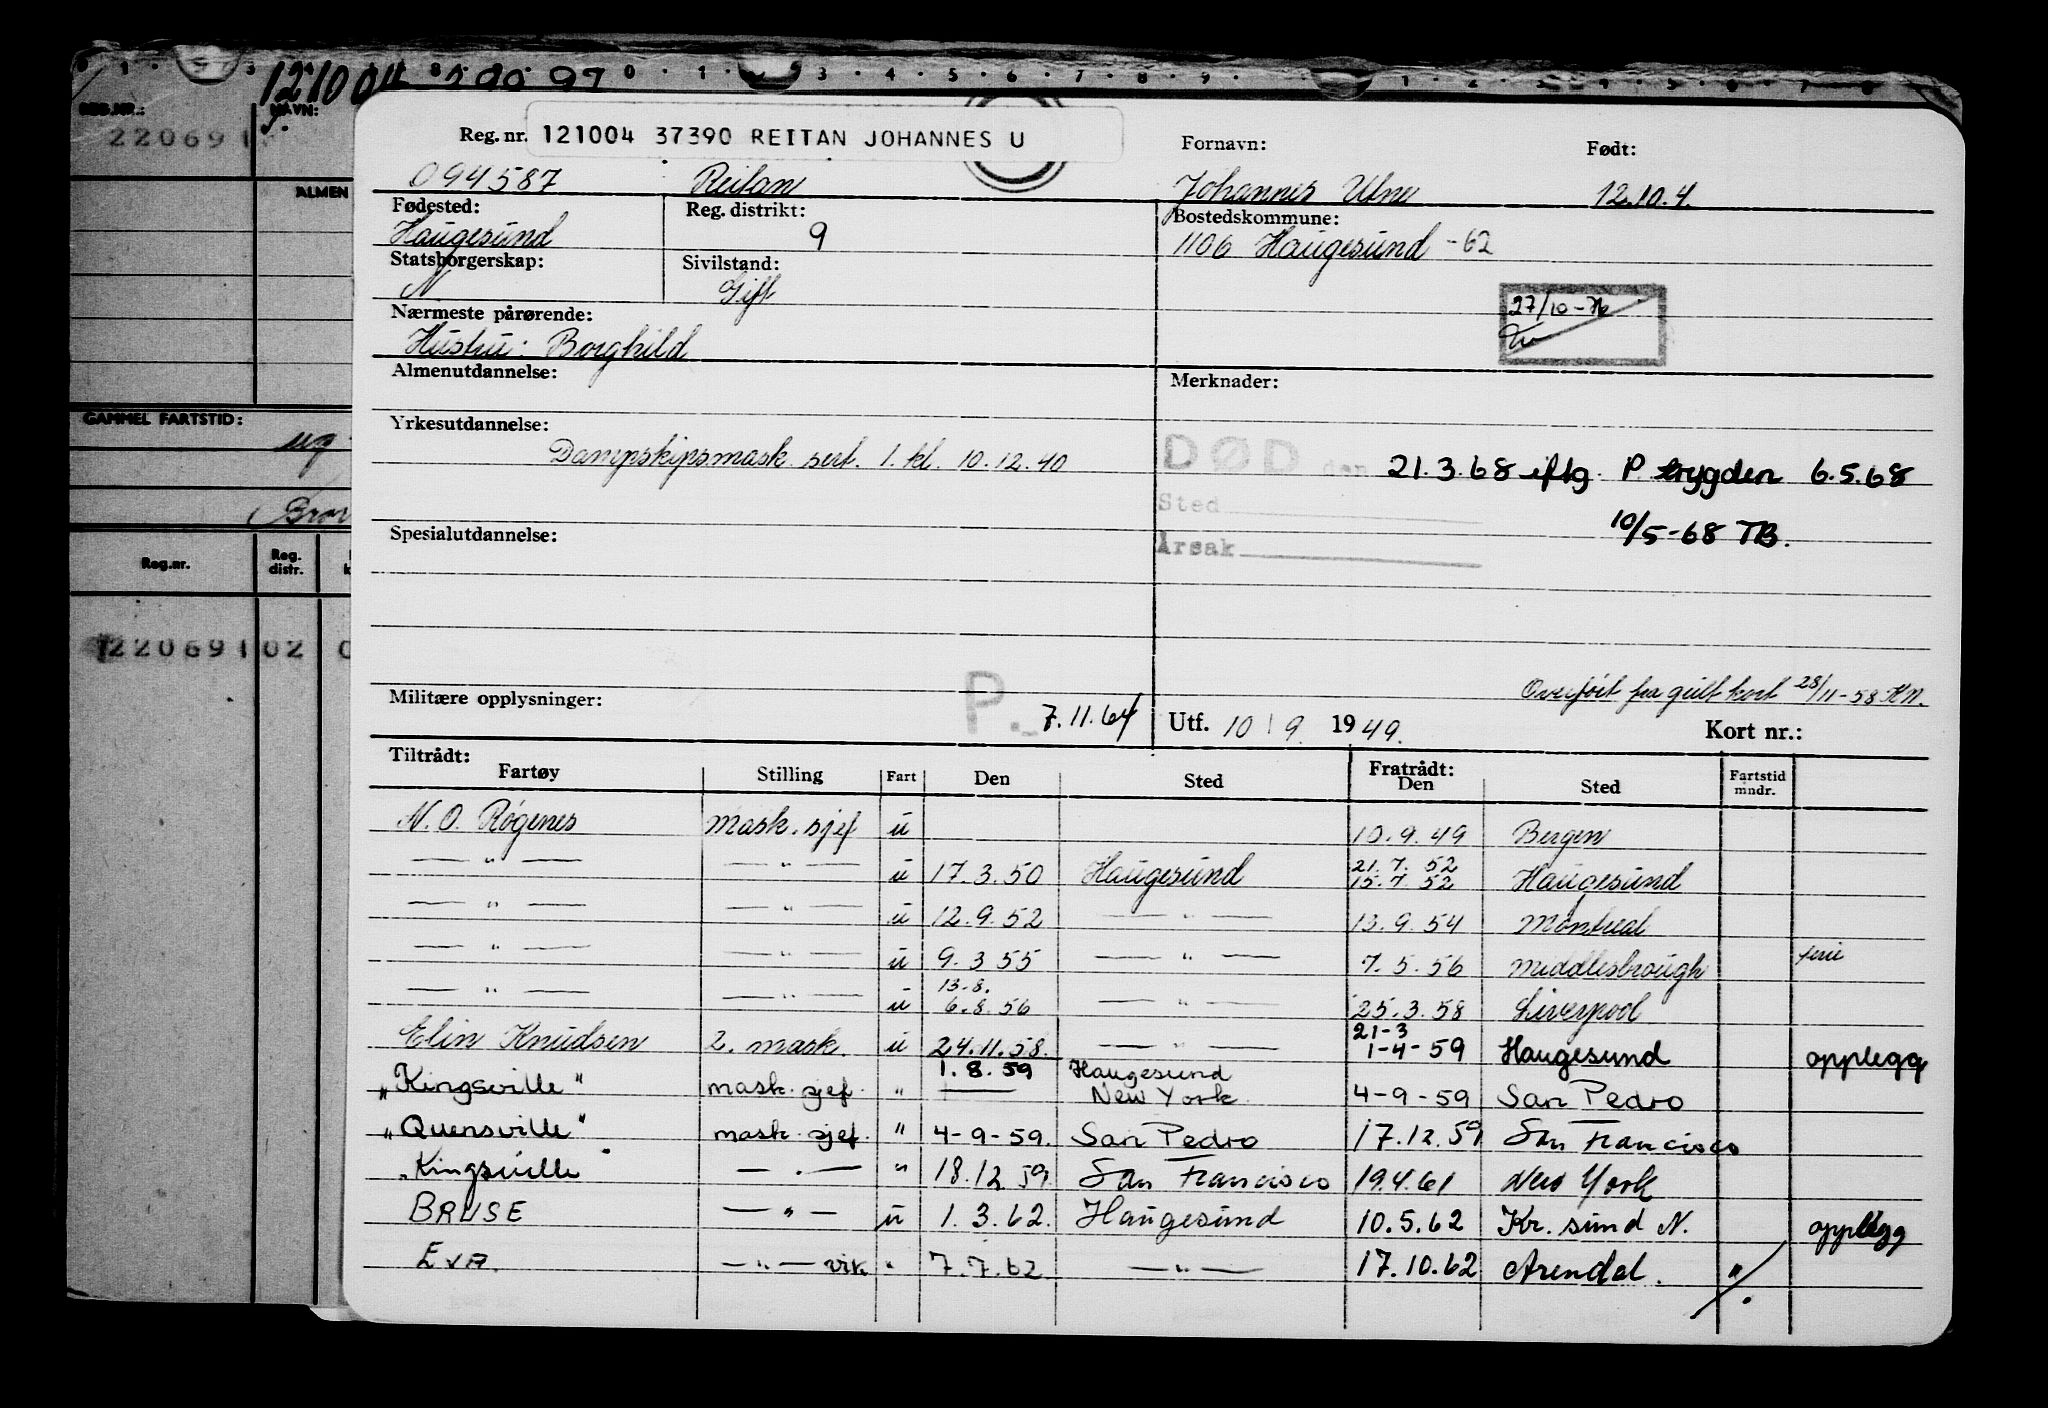 0 1 3 8 0 1 3 4 5 6 7 8 9 1 2
121004
REG.NR.: NAVN:
220691
ALMEN
GAMMEL FARTSTID:
Reg.nr. Reg. distr.
220691 02 0
Reg. nr. 121004 37390 REITAN JOHANNES U Fornavn: Født:
094587 Reitan Johannes Utne 12.10.4.
Fødested: Reg. distrikt: Bostedskommune:
Haugesund 9 1106 Haugesund -62
Statsborgerskap: Sivilstand:
N Gift
Nærmeste pårørende: 27/10-76
Hustru: Borghild
Almenutdannelse: Merknader:
Yrkesutdannelse:
Dampskipsmask. sert. 1. kl. 10.12.40
DØD den 21.3.68 iflg. P. trygden 6.5.68
Sted
10/5-68 TB.
Spesialutdannelse: Årsak
Overført fra gult kort 28/11-58 KN.
Militære opplysninger: P. 7.11.64 Utf. 10/9. 1949. Kort nr.:
Tiltrådt: Fratrådt:
Fartøy Stilling Fart Den Sted Den Sted Fartstid mndr.
N.O. Røgenes mask. sjef u 10.9.49 Bergen
— " — — " — u 17.3.50 Haugesund 21.7.52 15.7.52 Haugesund
— " — — " — u 12.9.52 — " — 13.9.54 Montreal
— " — — " — u 9.3.55 — " — 7.5.56 Middlesbrough ferie
— " — — " — u 13.8. 6.8.56 — " — 25.3.58 Liverpool
Elin Knudsen 2. mask. u 24.11.58. — " — 21-3 1-4-59 Haugesund opplegg
„Kingsville" mask. sjef. " 1.8.59 Haugesund New York 4-9-59 San Pedro
„Quensville" mask. sjef. " 4-9-59. San Pedro 17.12.59 San Francisco
„Kingsville" — " — " 18.12.59. San Francisco 19.4.61 New York
BRUSE — " — u 1.3.62. Haugesund 10.5.62 Kr. sund N. opplegg
EVA. — " — vik " 7.7.62 — " — 17.10.62 Arendal. "/.